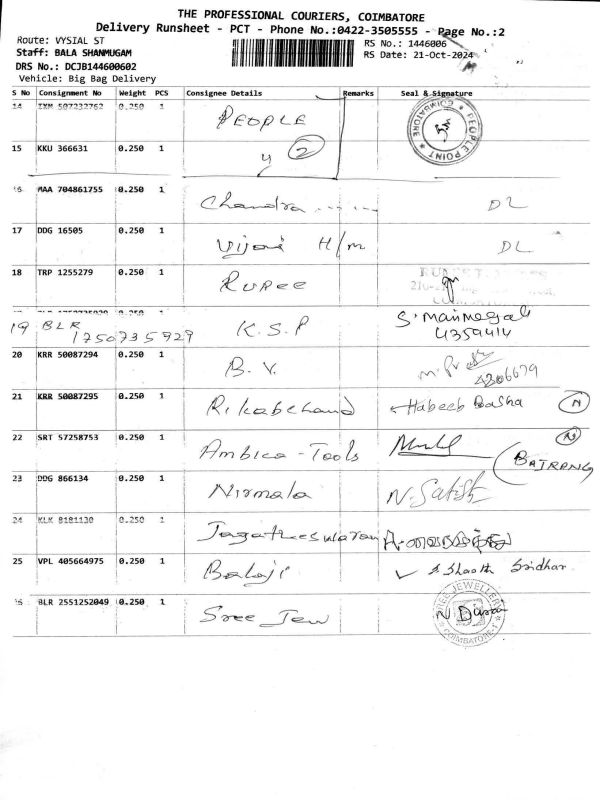 THE PROFESSIONAL COURIERS, COIMBATORE
Delivery Runsheet - PCT - Phone No.:0422-3505555 - Page No.:2
Route: VYSIAL ST
RS No.: 1446006
Staff: BALA SHANMUGAM
RS Date: 21-Oct-2024
DRS No.: DCJB144600602
Vehicle: Big Bag Delivery
S No Consignment No Weight PCS Consignee Details Remarks Seal & Signature
14 IXM 507232762 0.250 1 PEOPLE PEOPLE POINT COIMBATORE
15 KKU 366631 0.250 1 4 2
16 MAA 704861755 0.250 1 Chandra DL
17 DDG 16505 0.250 1 Vijaya H/m DL
18 TRP 1255279 0.250 1 RUPEE
19 BLR 1750735929 K.S.P S. Manimegal 4359414
20 KRR 50087294 0.250 1 B.V. 4306679
21 KRR 50087295 0.250 1 Rikabchand Habeeb Basha N
22 SRT 57258753 0.250 1 Ambica - Tools N BAJRANG
23 DDG 866134 0.250 1 Nirmala N. Satish
24 KLK 8181130 0.250 1 Jagatheeswaran
25 VPL 405664975 0.250 1 Balaji Sridhar
26 BLR 2551252049 0.250 1 Sree Jew SREE JEWELLERY COIMBATORE-1